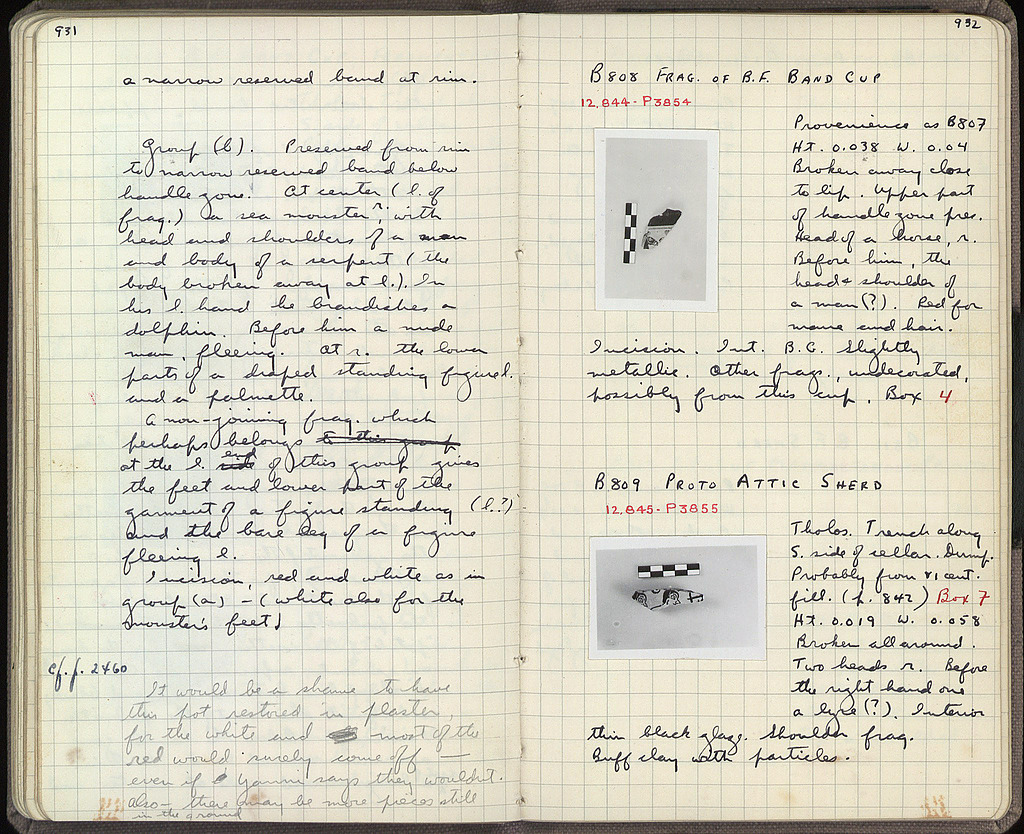 931
a narrow reserved band at rim.
Group (b). Preserved from rim
to narrow reserved band below
handle zone. At center (l. of
frag.) a sea monster r., with
head and shoulders of a man
and body of a serpent (the
body broken away at l.). In
his l. hand he brandishes a
dolphin. Before him a nude
man, fleeing. At r. the lower
parts of a draped standing figure l.
and a palmette.
A non-joining frag. which
perhaps belongs to this group
at the l. side end of this group gives
the feet and lower part of the
garment of a figure standing (l.?)
and the bare leg of a figure
fleeing l.
Incision, red and white as in
group (a) - (white also for the
monster's feet)
cf. p. 2460
It would be a shame to have
this pot restored in plaster,
for the white and most of the
red would surely come off —
even if Yanni says they wouldn't.
also - there may be more pieces still
in the ground
932
B808 FRAG. OF B.F. BAND CUP
12,844 - P3854
Provenience as B807
Ht. 0.038 W. 0.04
Broken away close
to lip. Upper part
of handle zone pres.
Head of a horse, r.
Before him, the
head & shoulder of
a man (?). Red for
mane and hair.
Incision. Int. B.G. Slightly
metallic. Other frags., undecorated,
possibly from this cup. Box 4
B809 PROTO ATTIC SHERD
12,845 - P3855
Tholos. Trench along
S. side of cellar. Dump.
Probably from VI cent.
fill. (p. 842) Box 7
Ht. 0.019 W. 0.058
Broken all around.
Two heads r. Before
the right hand one
a lyre (?). Interior
thin black glaze. Shoulder frag.
Buff clay with particles.